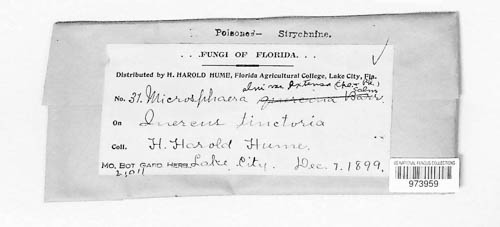 Poisoned- Strychnine.
..FUNGI OF FLORIDA...
Distributed by H. HAROLD HUME, Florida Agricultural College, Lake City, Fla.
alni var. extensa (C. & Pk.) Salm
No. 31. Microsphaera quercina Burr
On Quercus tinctoria
Coll. H. Harold Hume.
Lake City. Dec. 7. 1899.
MO. BOT GARD HERB.
US NATIONAL FUNGUS COLLECTIONS
973959